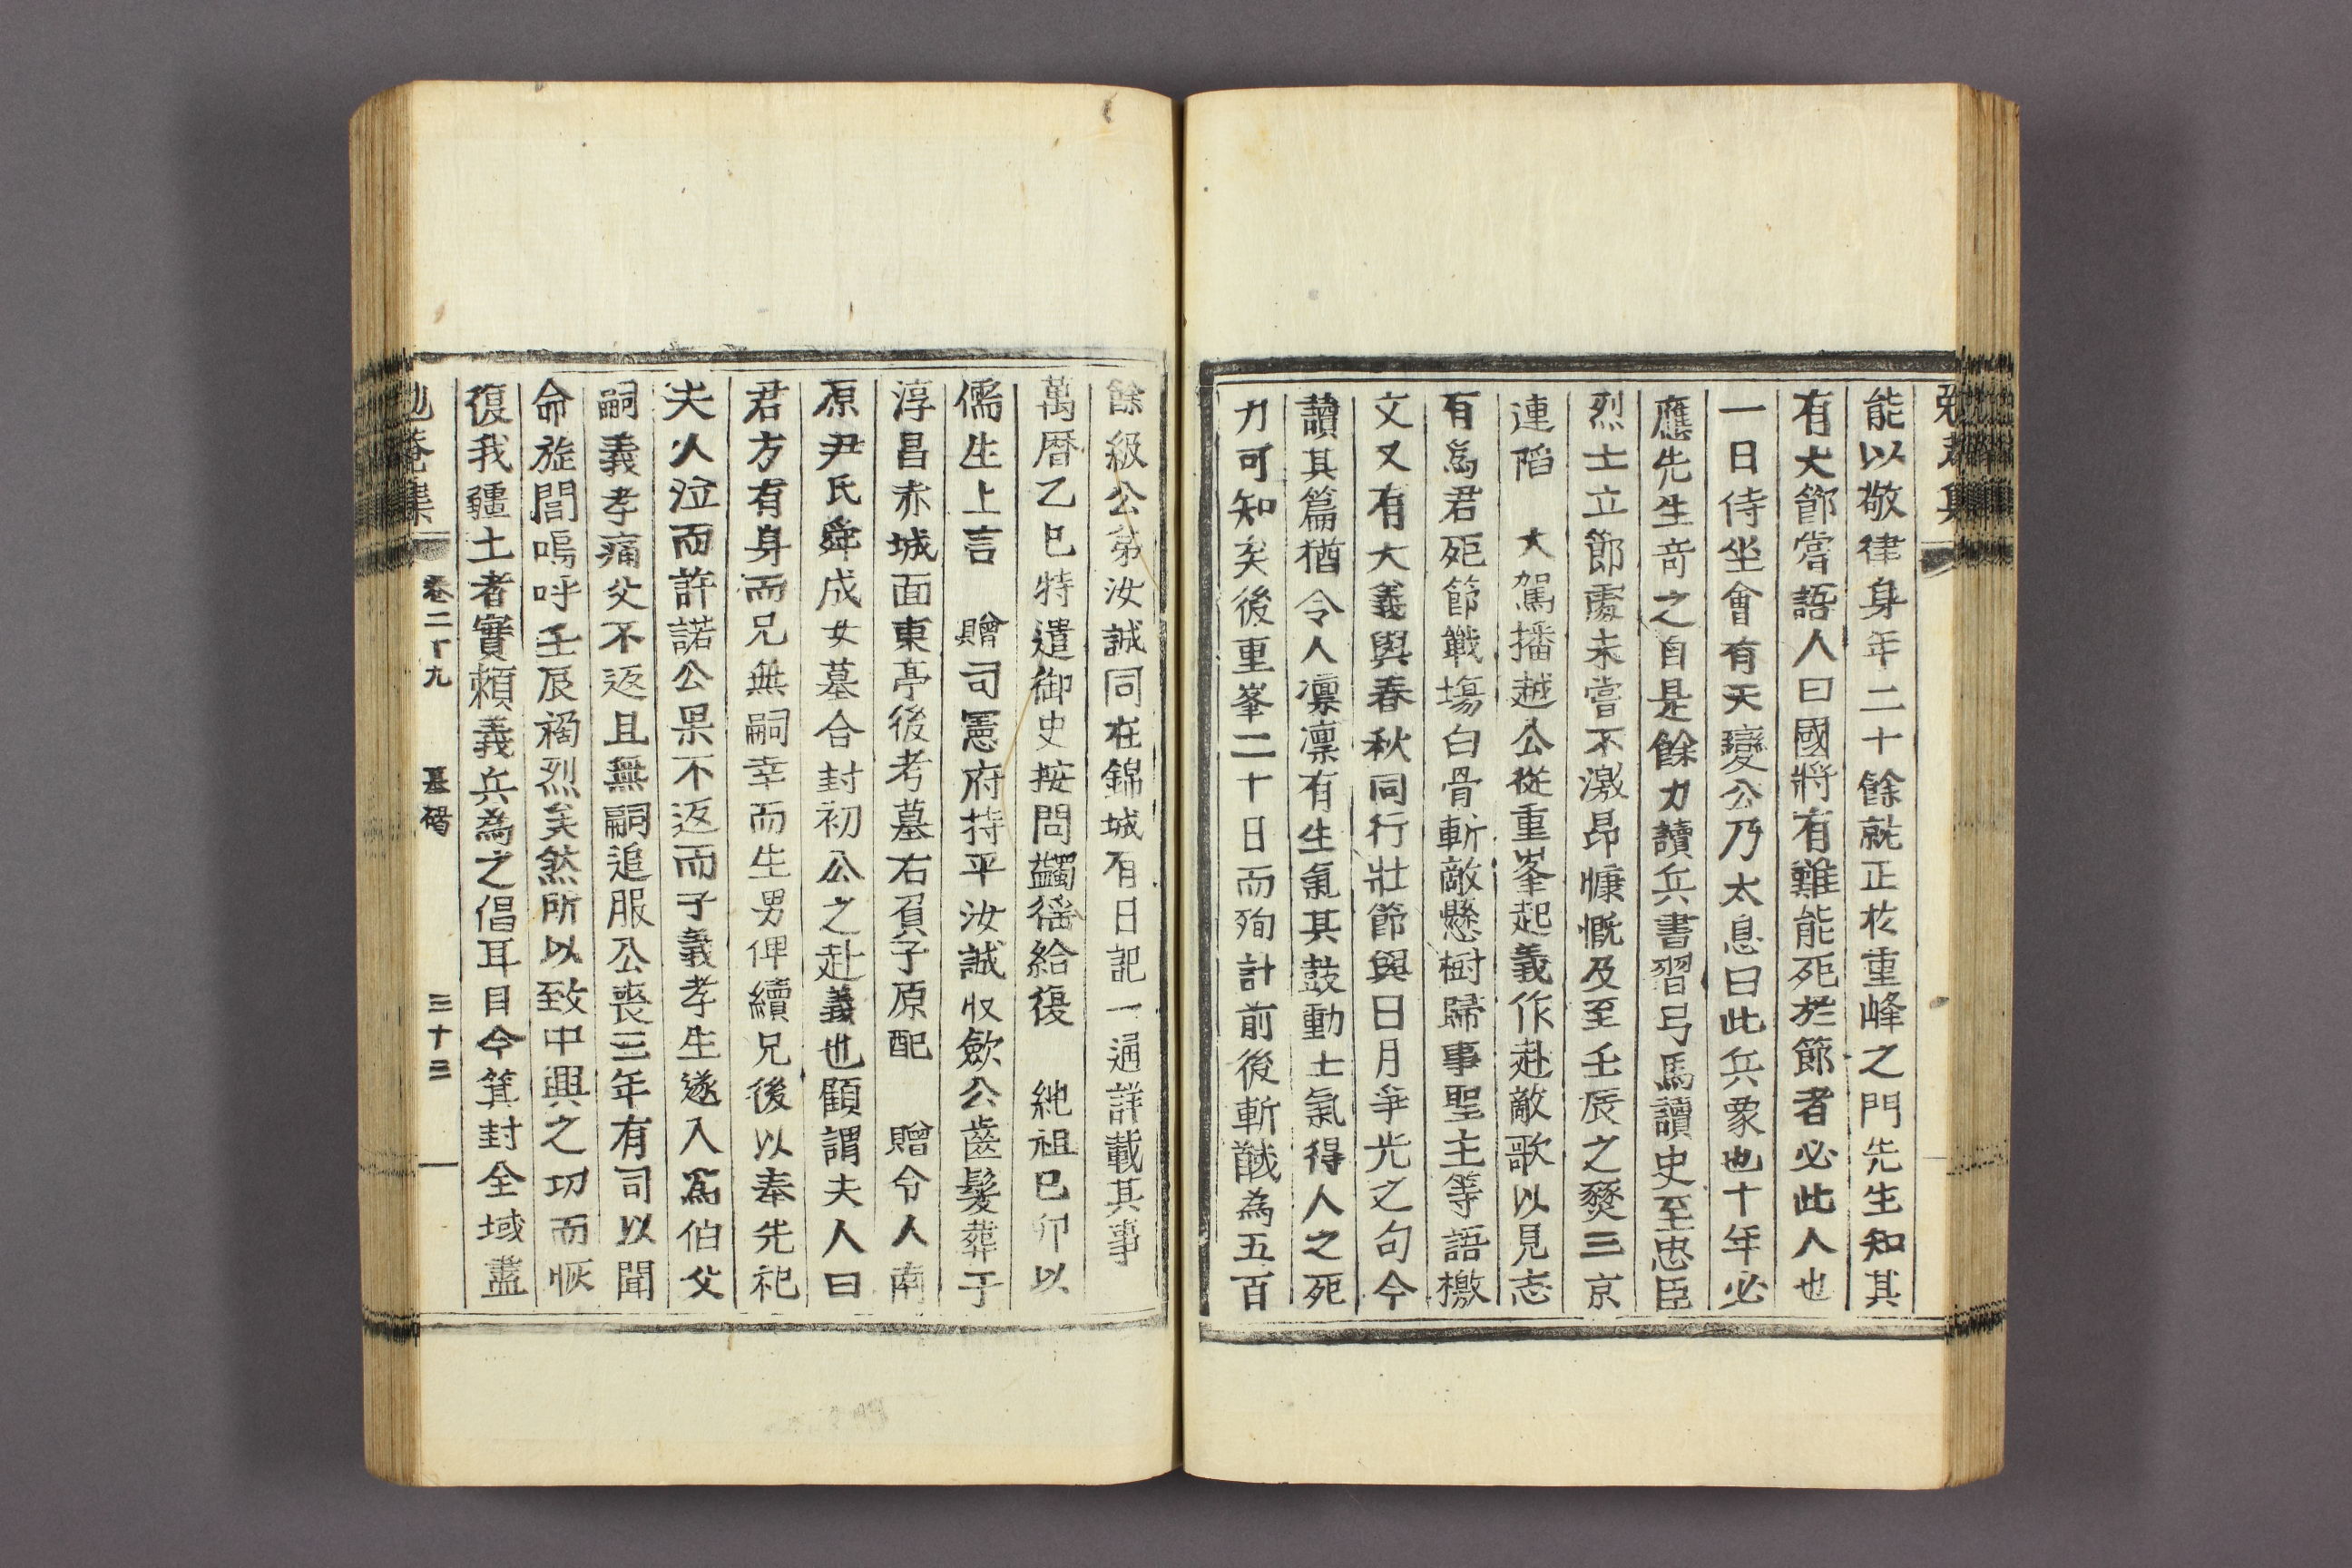 能以敬律身年二十餘就正於重峰之門先生知其
有大節嘗語人曰國將有難能死於節者必此人也
一日侍坐會有天變公乃太息曰此兵象也十年必
應先生奇之自是餘力讀兵書習弓馬讀史至忠臣
烈士立節處未嘗不激昂慷慨及至壬辰之燹三京
連陷 大駕播越公從重峯起義作赴敵歌以見志
有爲君死節戰場白骨斬敵懸樹歸事聖主等語檄
文又有大義與春秋同行壯節與日月爭光之句今
讀其篇猶令人凛凛有生氣其鼓動士氣得人之死
力可知矣後重峯二十日而殉計前後斬馘為五百
餘級公弟汝誠同在錦城有日記一通詳載其事
萬曆乙巳特遣御史按問蠲徭給復 純祖己卯以
儒生上言 贈司憲府持平汝誠收歛公齒髮葬于
淳昌赤城面東亭後考墓右負子原配 贈令人南
原尹氏舜成女墓合封初公之赴義也顧謂夫人曰
君方有身而兄無嗣幸而生男俾續兄後以奉先祀
夫人泣而許諾公果不返而子義孝生遂入爲伯父
嗣義孝痛父不返且無嗣追服公喪三年有司以聞
命旌閭嗚呼壬辰禍烈矣然所以致中興之功而恢
復我疆土者實賴義兵為之倡耳目今箕封全域盡
卷二十九 墓碣 三十三